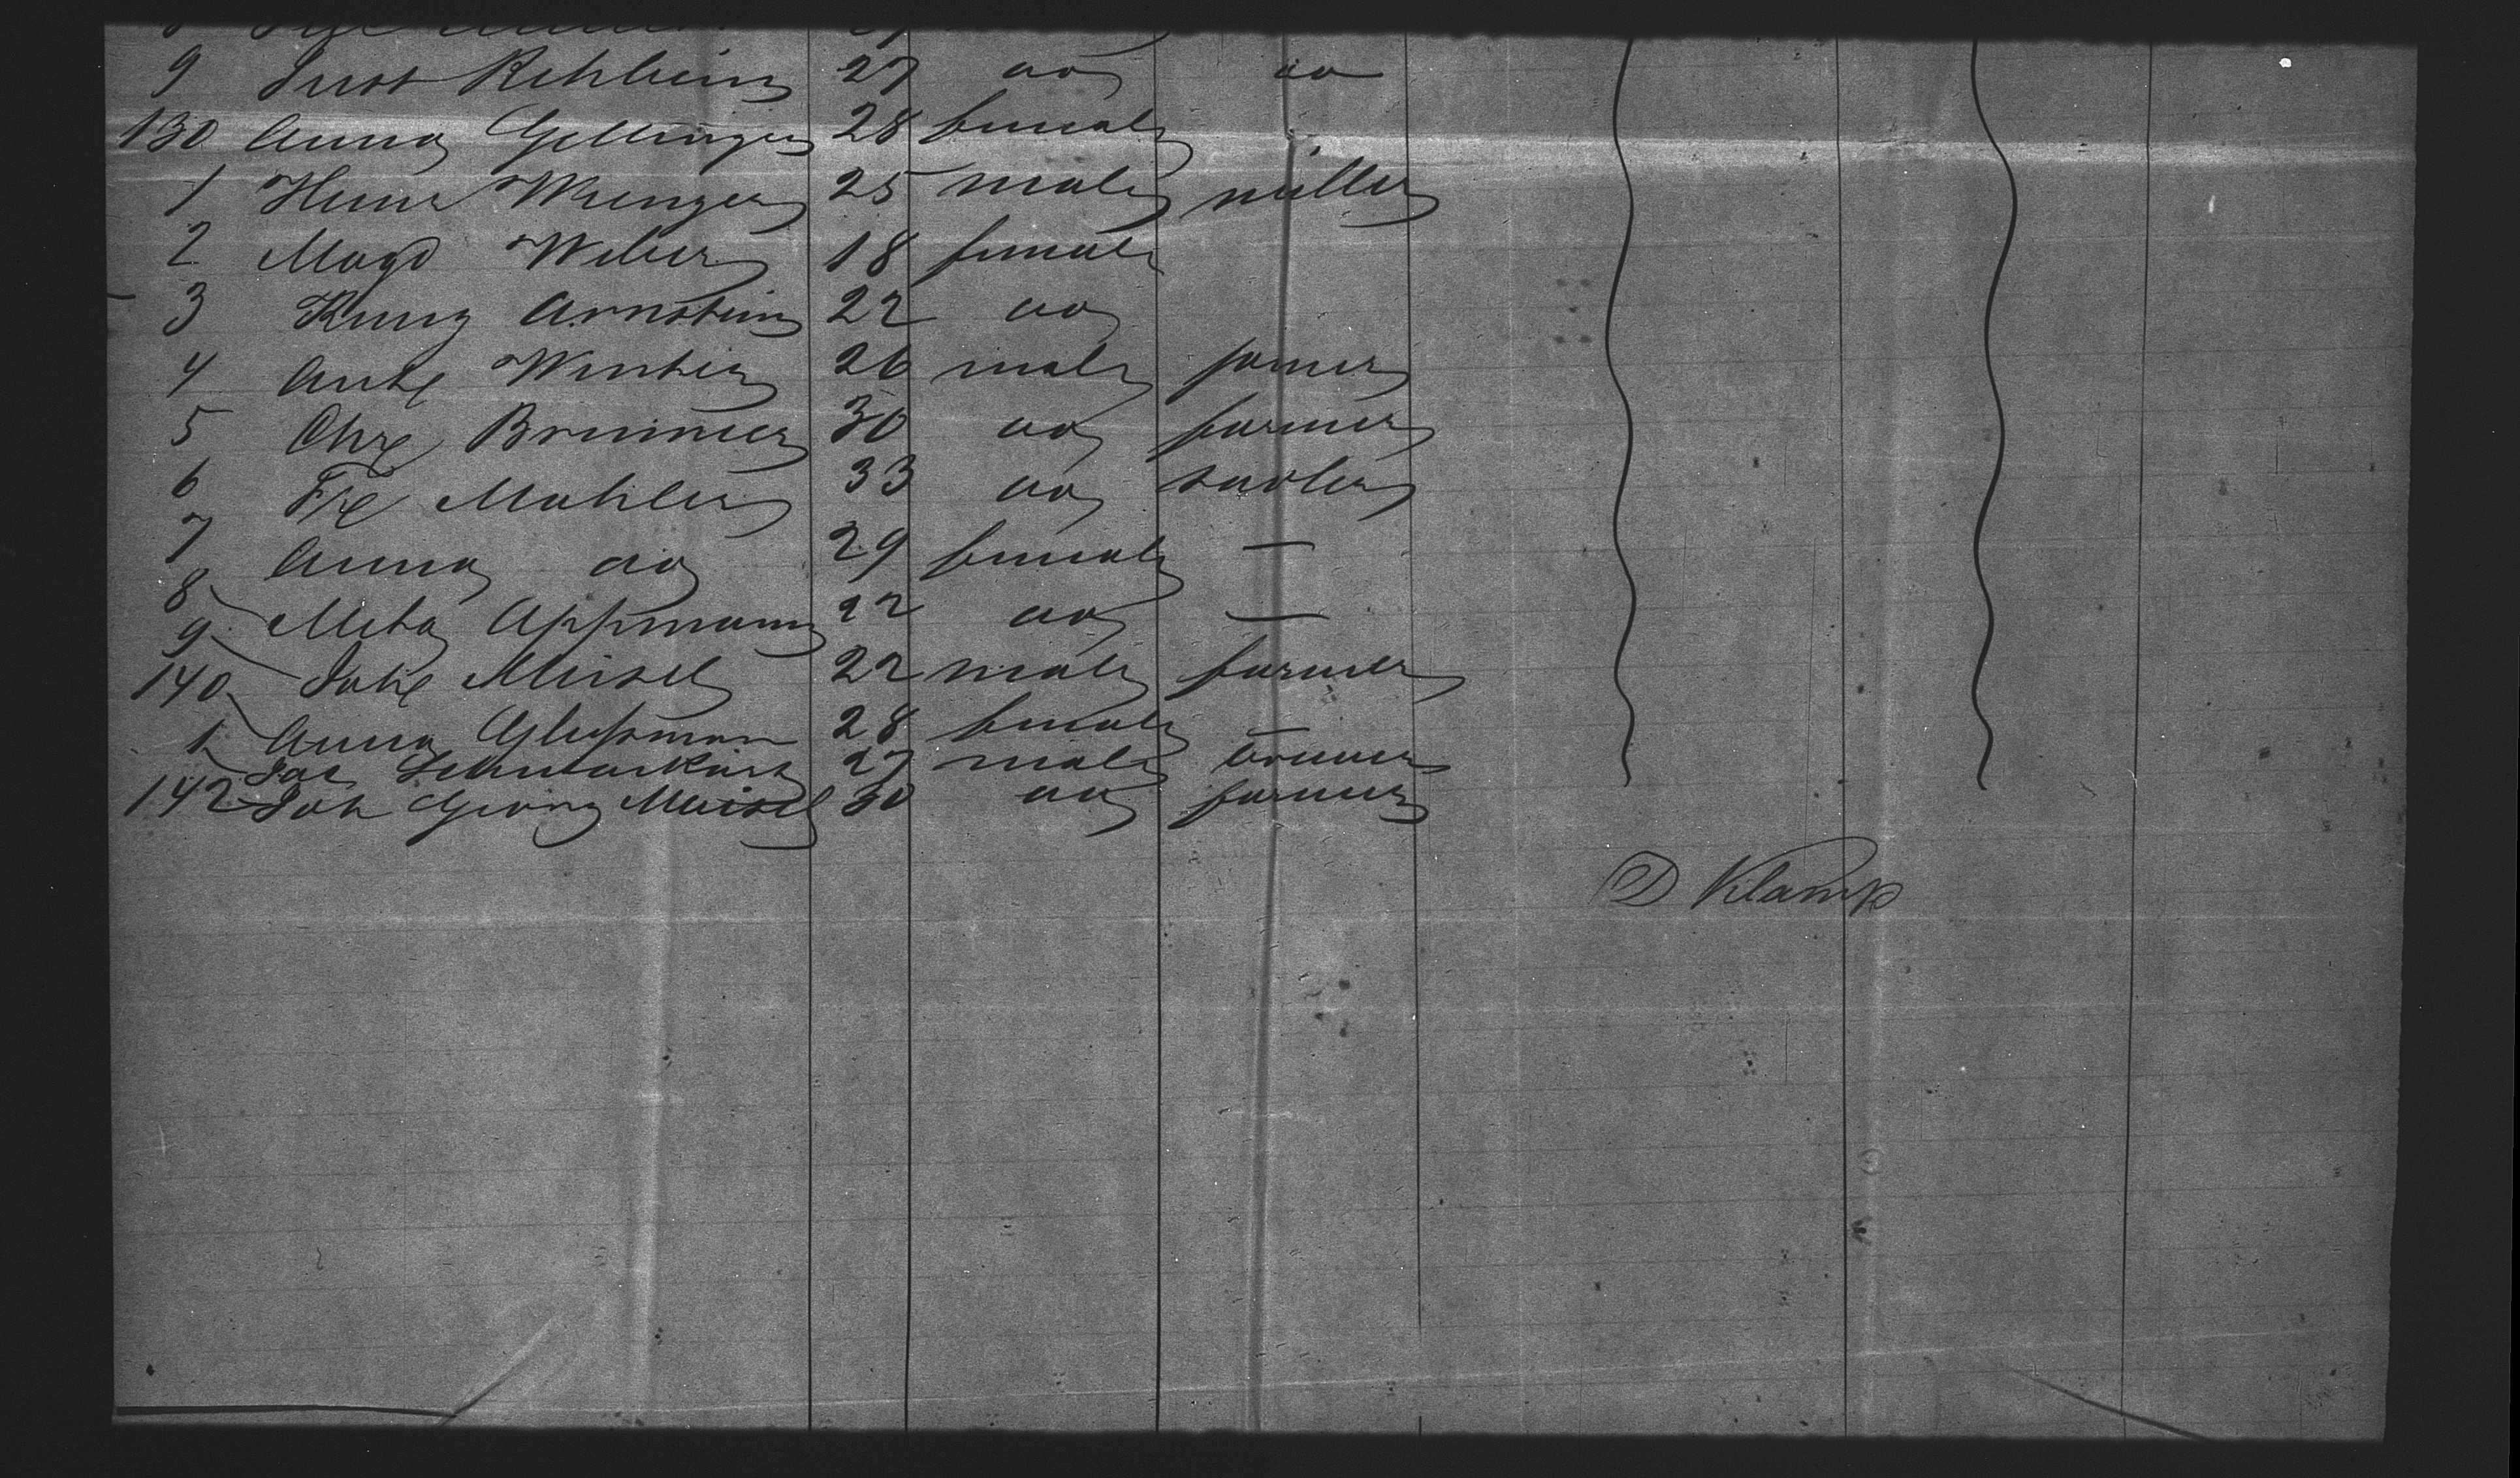 9 Just Rehbein 27 do do
130 Anna Gellinger 28 female
1 Heinr Wenger 25 male miller
2 Magd Weber 18 female
3 Kung Arnstein 22 do
4 Win 26 male
5 Chr Brunner 30 do farmer
6 Fr Mahler 33 do sadler
7 Anna do 29 female —
8 Meta Appmann 22 do —
9 Meisel 22 male farmer
140 Anna 28 female —
1 Jac 27 male
142 Joh Georg Meisel 30 do farmer
D Klamp